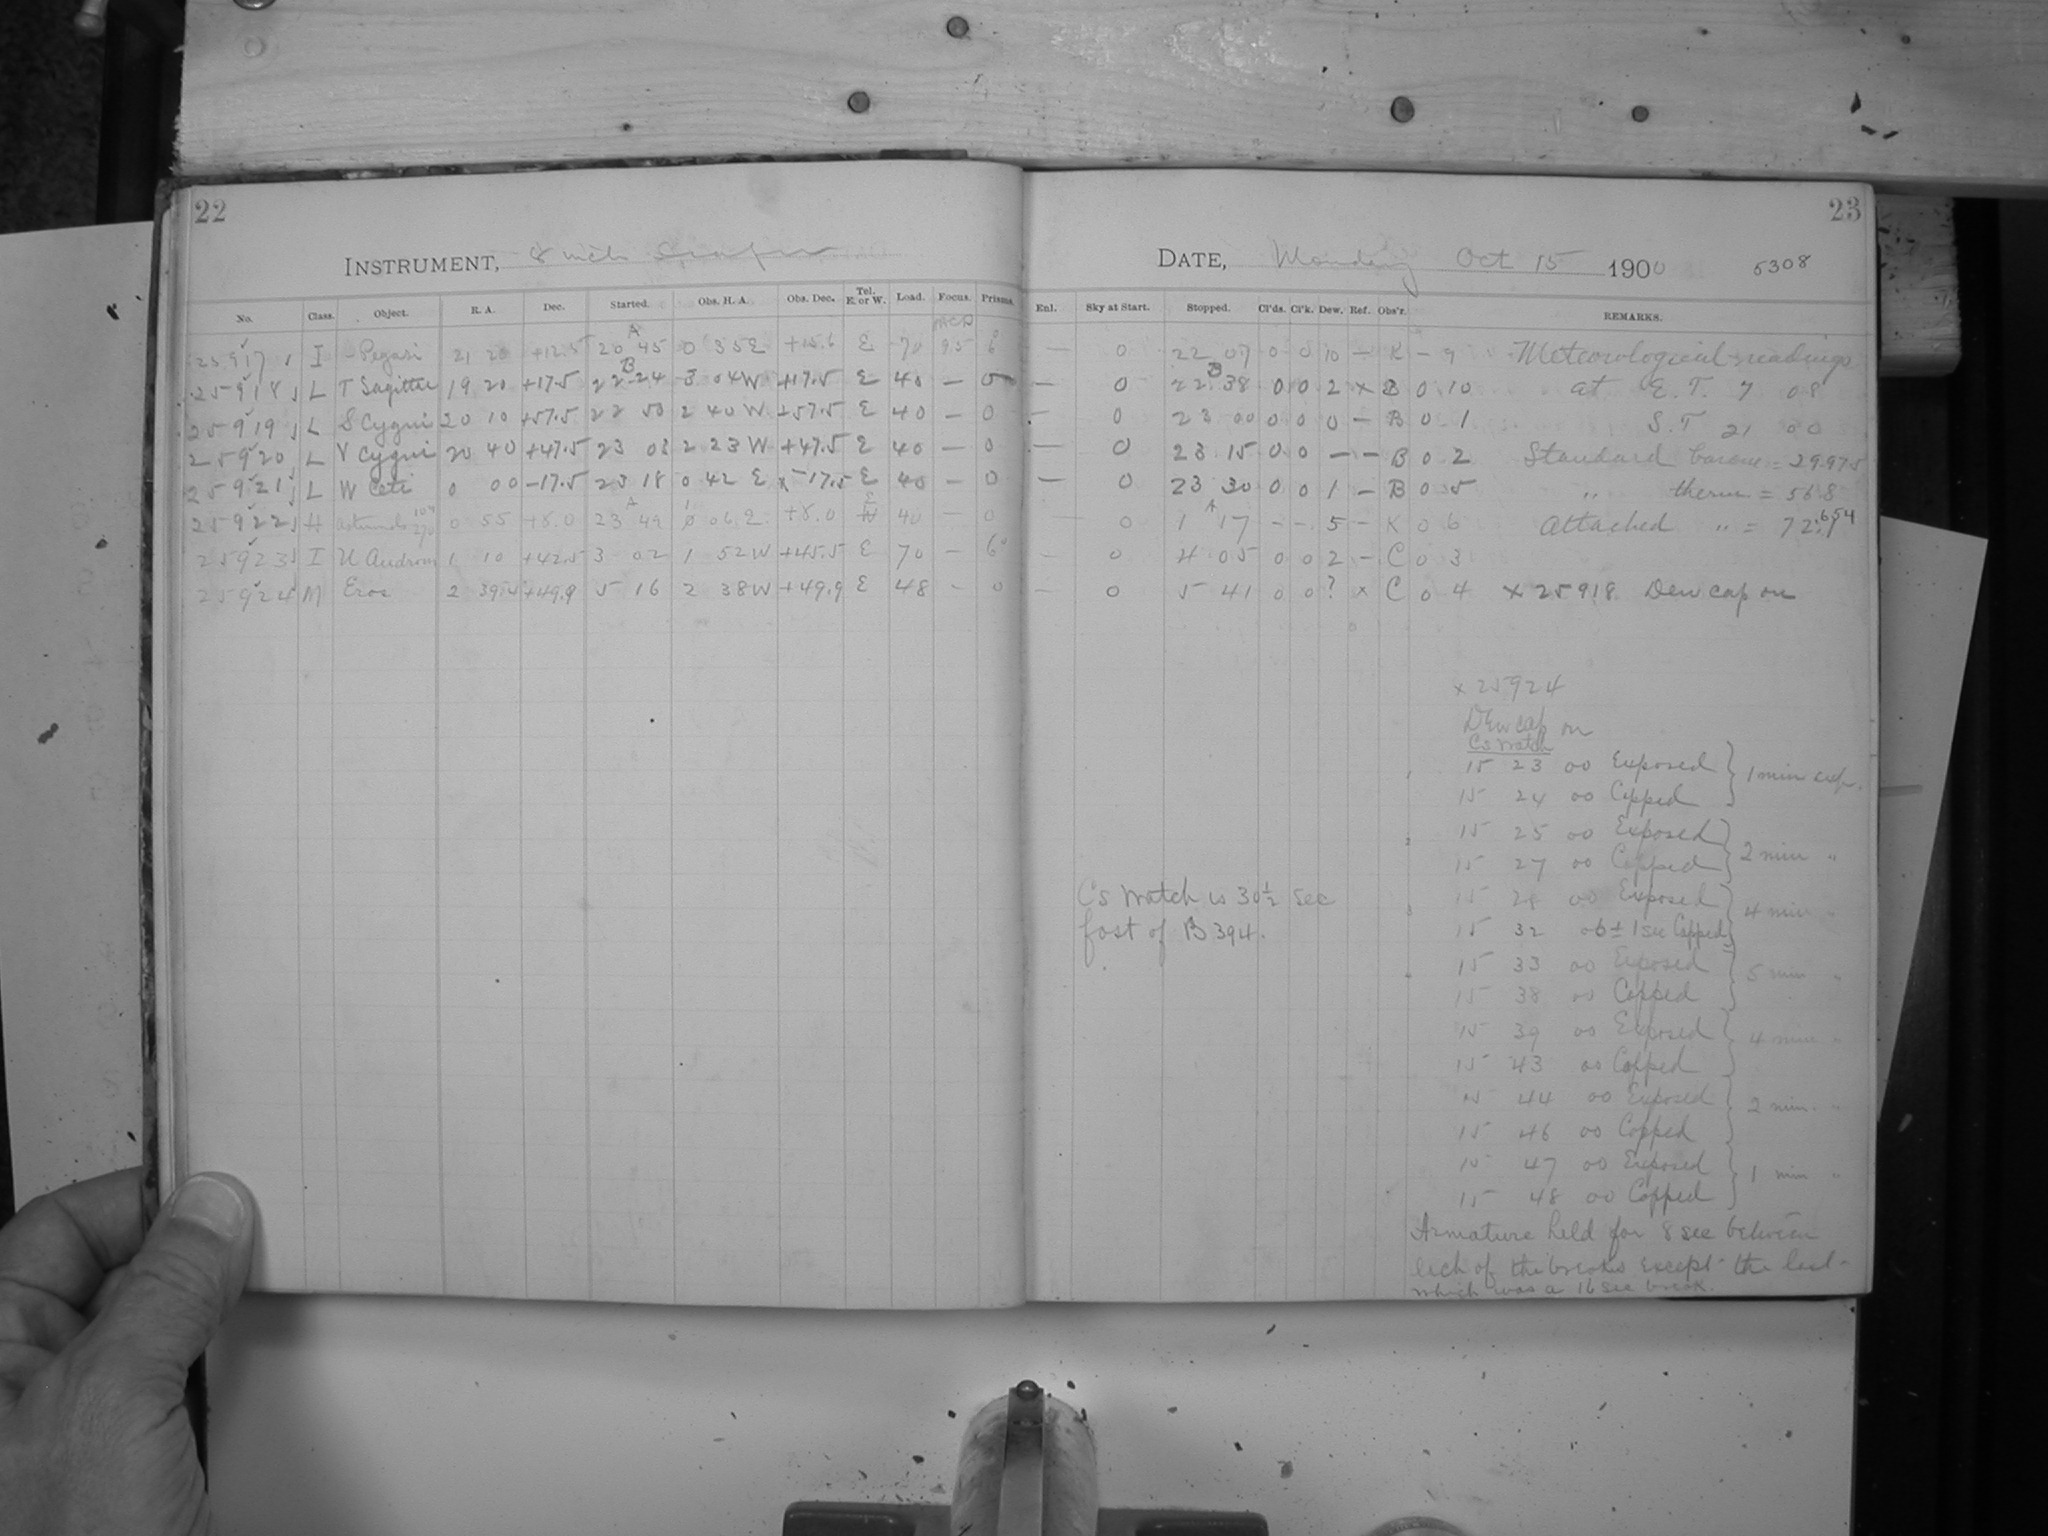 22
INSTRUMENT, 8 inch
No. Class. Object. R. A. Dec. Started. Obs. H. A. Obs. Dec. Tel. E. or W. Load. Focus. Prisms.
25917 I Pegasi 21 20 +12.5 A 20 45 0 35 E +15.6 E 70 95 6
25918 L T Sagittae 19 20 +17.5 B 22 24 3 04 W +17.5 E 40 — 0
25919 L S Cygni 20 10 +57.5 22 50 2 40 W +57.5 E 40 — 0
25920 L V Cygni 20 40 +47.5 23 03 2 23 W +47.5 E 40 — 0
25921 L W Ceti 0 00 -17.5 23 18 0 42 E -17.5 E 40 — 0
25922 H 0 55 +8.0 A 23 49 1 06 +8.0 E 40 — 0
25923 I U Androm 1 10 +42.5 3 02 1 52 W +45.5 E 70 — 6°
25924 M Eros 2 39.4 +49.9 5 16 2 38 W +49.9 E 48 - 0
23
DATE, Monday Oct 15 1900 5308
Enl. Sky at Start. Stopped. Cl'ds. Cl'k. Dew. Ref. Obs'r. REMARKS.
— 0 22 07 0 0 10 — K - 9 Meteorological readings
— 0 B 22 38 0 0 2 x B 0 10 at E. T. 7 08
— 0 23 00 0 0 0 — B 0 1 S.T 21 00
— 0 23 15 0 0 — — B 0 2 Standard barom = 29.975
— 0 23 30 0 0 1 — B 0 5 " therm = 56.8
0 A 1 17 - - 5 — K 0 6 Attached " =
— 0 4 05 0 0 2 — C 0 3
— 0 5 41 0 0 ? x C 0 4 x 25918 Dew cap on
x 25924
Dew cap on
Cs watch
1 15 23 00 Exposed } 1 min exp.
15 24 00 Capped
2 15 25 00 Exposed } 2 min "
15 27 00 Capped
3 15 28 00 Exposed } 4 min "
15 32 06 ± 1 sec Capped
15 33 00 Exposed } 5 min "
15 38 00 Capped
15 39 00 Exposed } 4 min "
15 43 00 Capped
15 44 00 Exposed } 2 min. "
15 46 00 Capped
15 47 00 Exposed } 1 min "
15 48 00 Capped
Cs watch is 30½ sec
fast of B 394.
Armature held for 8 sec between
each of the breaks except the last
which was a 16 sec break.